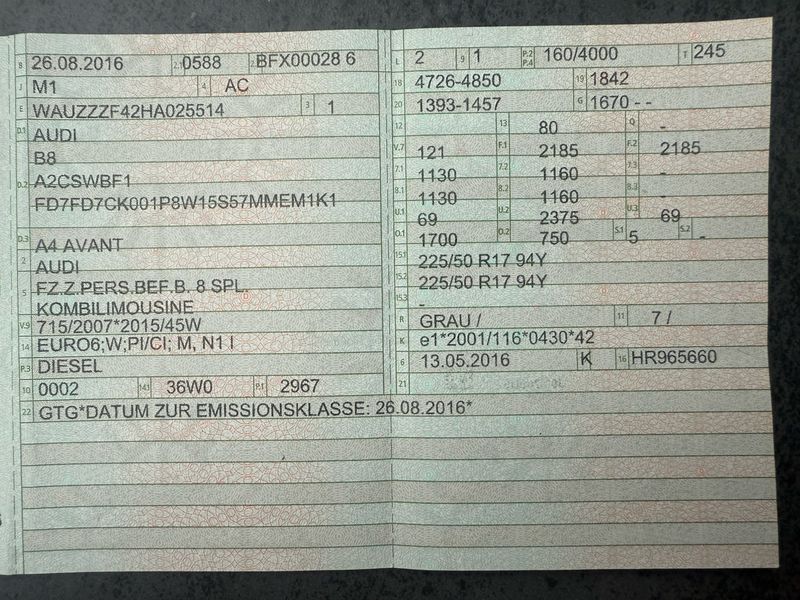 B 26.08.2016 2.1 0588 2.2 BFX00028 6
J M1 4 AC
E WAUZZZF42HA025514 3 1
D.1 AUDI
B8
D.2 A2CSWBF1
FD7FD7CK001P8W15S57MMEM1K1
D.3 A4 AVANT
2 AUDI
5 FZ.Z.PERS.BEF.B. 8 SPL.
KOMBILIMOUSINE
V.9 715/2007*2015/45W
14 EURO6;W;PI/CI; M, N1 I
P.3 DIESEL
10 0002 14.1 36W0 P.1 2967
22 GTG*DATUM ZUR EMISSIONSKLASSE: 26.08.2016*
L 2 9 1 P.2 P.4 160/4000 T 245
18 4726-4850 19 1842
20 1393-1457 G 1670 - -
12 - 13 80 Q -
V.7 121 F.1 2185 F.2 2185
7.1 1130 7.2 1160 7.3 -
8.1 1130 8.2 1160 8.3 -
U.1 69 U.2 2375 U.3 69
O.1 1700 O.2 750 S.1 5 S.2 -
15.1 225/50 R17 94Y
15.2 225/50 R17 94Y
15.3 -
R GRAU / 11 7 /
K e1*2001/116*0430*42
6 13.05.2016 K 16 HR965660
21